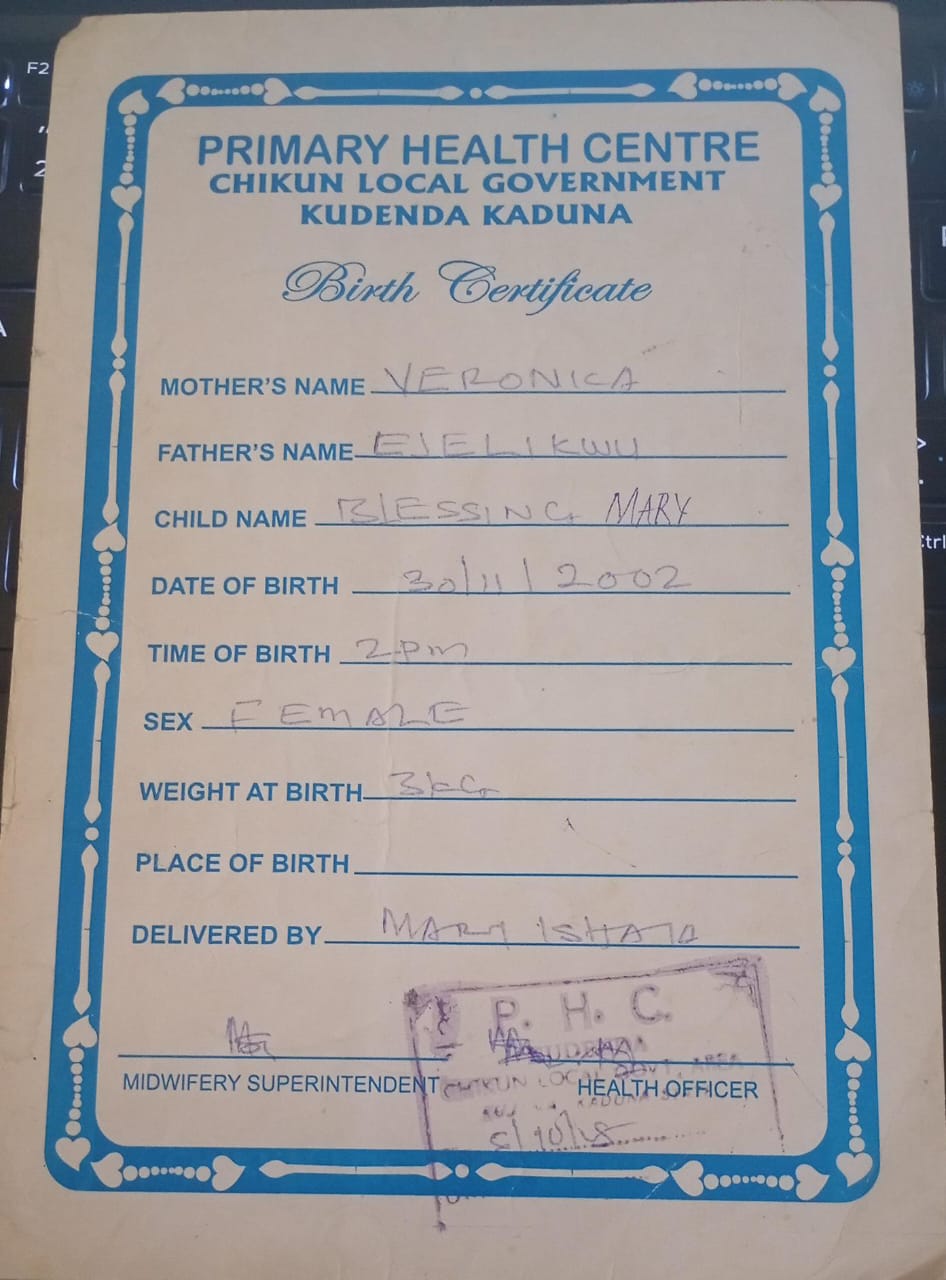 PRIMARY HEALTH CENTRE
CHIKUN LOCAL GOVERNMENT
KUDENDA KADUNA
Birth Certificate
MOTHER'S NAME VERONICA
FATHER'S NAME EJELIKWU
CHILD NAME BLESSING MARY
DATE OF BIRTH 30/11/2002
TIME OF BIRTH 2pm
SEX FEMALE
WEIGHT AT BIRTH 3kG
PLACE OF BIRTH
DELIVERED BY MARY ISHAYA
P. H. C.
CHIKUN LOCAL GOVT. AREA
MIDWIFERY SUPERINTENDENT
HEALTH OFFICER